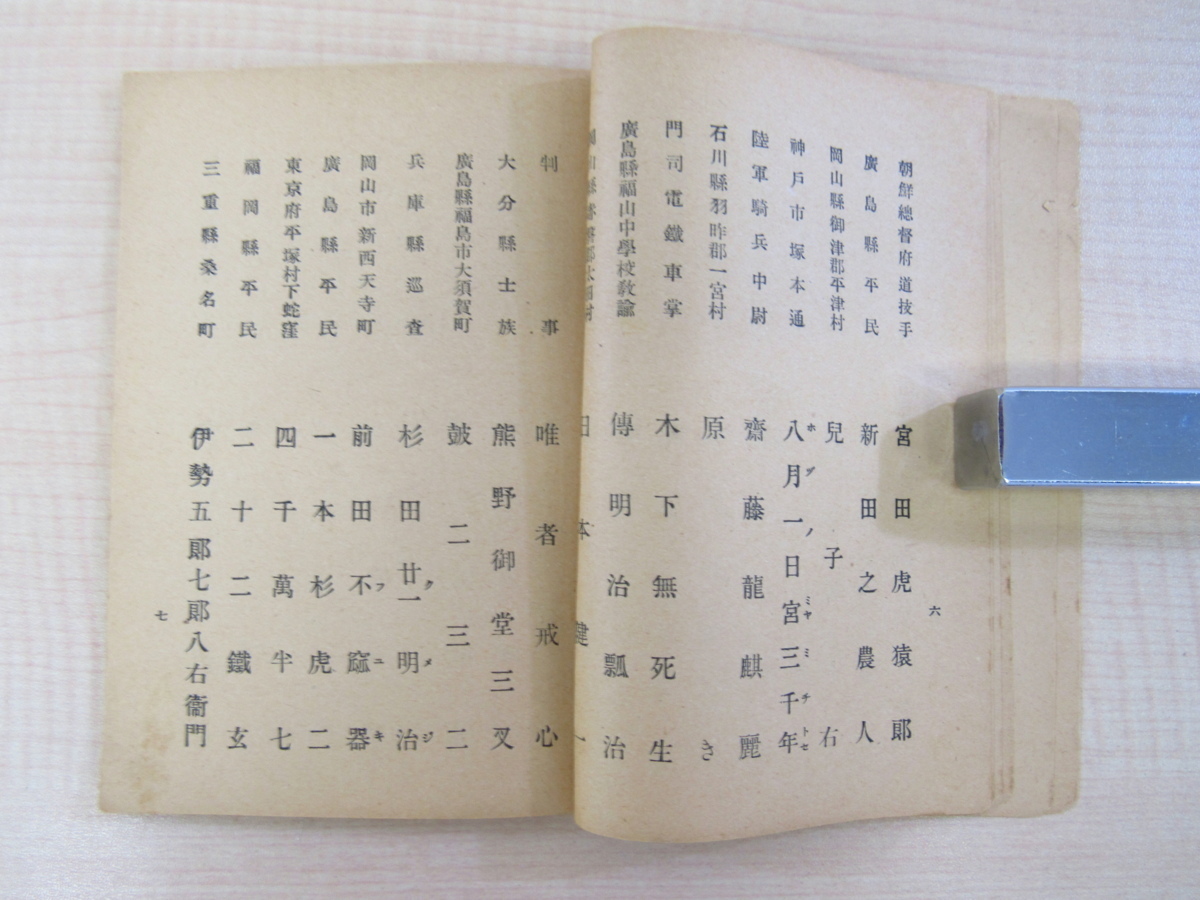 六
朝鮮總督府道技手 宮田虎猿郎
廣島縣平民 新田之農人
岡山縣御津郡平津村 兒子右
神戸市塚本通 八月一日宮三千年
ホヅノミヤミチトセ
陸軍騎兵中尉 齋藤龍麒麗
石川縣羽昨郡一宮村 原き
門司電鐵車掌 木下無死生
廣島縣福山中學校敎諭 傳明治瓢治
田本健一
判事 唯者戒心
大分縣士族 熊野御堂三叉
廣島縣福島市大須賀町 皷二三二
兵庫縣巡査 杉田廿一明治
クメジ
岡山市新西天寺町 前田不窳器
フユキ
廣島縣平民 一本杉虎二
東京府平塚村下蛇窪 四千萬半七
福岡縣平民 二十二鐵玄
三重縣桑名町 伊勢五郎七郎八右衞門
七